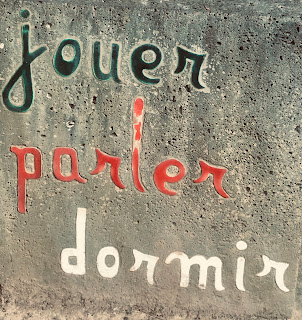 jouer
parler
dormir